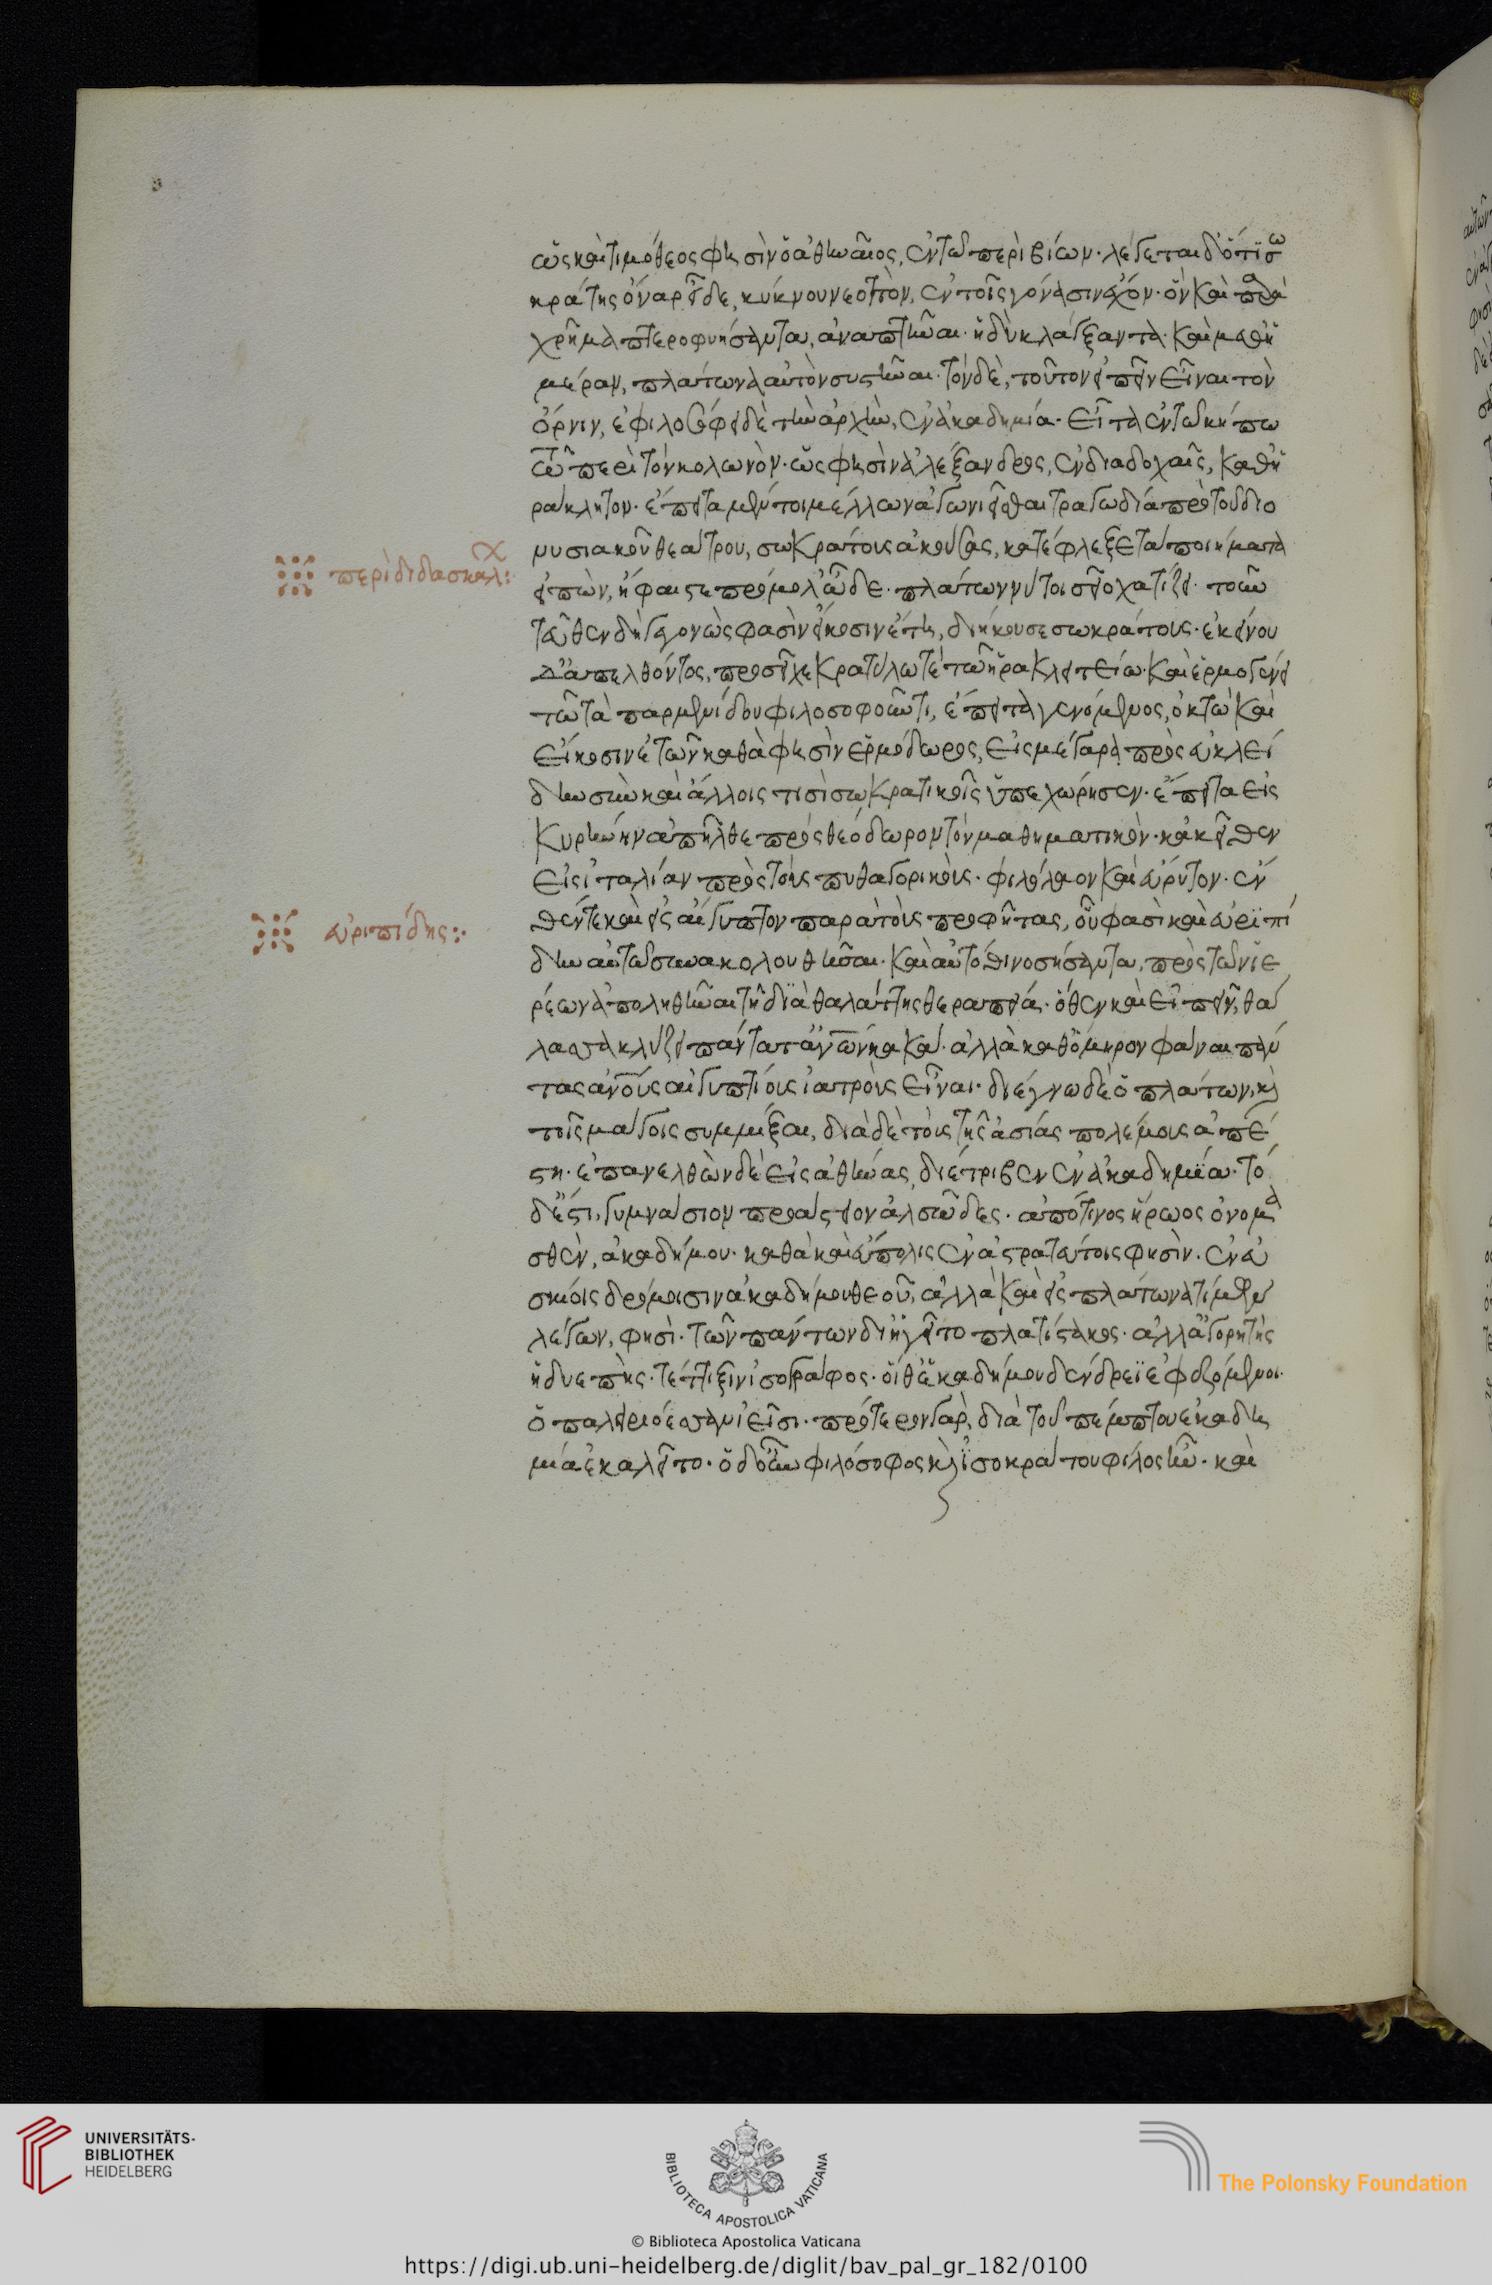 ὥς καὶ τιμόθεος φησὶν ὁ ἀθηναῖος, ἐν τῷ περὶ βίων· λέγεται δ' ὅτι σω
κράτης ὄναρ εἶδε, κύκνου νεοττὸν, ἐν τοῖς γόνασιν ἔχειν· ὃν καὶ παρα
χρῆμα πτεροφυήσαντα, ἀναπτῆναι· ἡδὺ κλάγξαντα· καὶ μεθ' ἡ
μέραν, πλάτωνα αὐτὸν συστῆναι· τὸν δὲ, τοῦτον εἰπεῖν εἶναι τὸν
ὄρνιν, ἐφιλοσόφει δὲ τὴν ἀρχὴν, ἐν ἀκαδημία· εἶτα ἐν τῷ κήπω
τῶ περὶ τὸν κολωνὸν· ὥς φησὶν ἀλέξανδρος, ἐν διαδοχαῖς, καθ' ἡ
ράκλητον· ἔπειτα μέντοι μέλλων ἀγωνιεῖσθαι τραγωδία πρὸ τοῦ διο
νυσιακοῦ θεάτρου, σωκράτους ἀκούσας, κατέφλεξε τὰ ποιήματα
περὶ διδασκαλ:
εἰπὼν, ἥφαιστε πρόμολ' ὧδε· πλάτων νύ τοι σεῖο χατίζει· τοὐν
τεῦθεν δὴ γεγονὼς φασὶν εἴκοσιν ἔτη, διήκουσε σωκράτους· ἐκείνου
δ' ἀπελθόντος, προσεῖχε κρατύλω τὲ τῶ ἡρακλειτείω· καὶ ἑρμογένει
τῶ τὰ παρμενίδου φιλοσοφοῦντι, ἔπειτα γενόμενος, ὀκτὼ καὶ
εἴκοσιν ἐτῶν καθὰ φησὶν ἑρμόδωρος, εἰς μέγαρα πρὸς εὐκλεί
δην σὺν καὶ ἄλλοις τισὶ σωκρατικοῖς ὑπεχώρησεν· ἔπειτα εἰς
κυρήνην ἀπῆλθε πρὸς θεόδωρον τὸν μαθηματικὸν· κἀκεῖθεν
εἰς ἰταλίαν πρὸς τοὺς πυθαγορικοὺς· φιλόλαον καὶ εὔρυτον· ἔν
θέν τε καὶ εἰς αἴγυπτον παρὰ τοὺς προφήτας, οὗ φασὶ καὶ εὐριπί
εὐριπίδης:
δην αὐτῶ συνακολουθῆσαι· καὶ αὐτόθι νοσήσαντα, πρὸς τῶν ἱε
ρέων ἀπολυθῆναι τῆ διὰ θαλάττης θεραπεία· ὅθεν καὶ εἰπεῖν, θά
λασσα κλύζει πάντα τἀνῶν κακά· ἀλλὰ καθ' ὅμηρον φάναι πάν
τας ἀνους αἰγυπτίους ἰατροὺς εἶναι· διέγνω δὲ ὁ πλάτων, καὶ
τοῖς μάγοις συμμίξαι, διὰ δὲ τοὺς τῆς ἀσίας πολέμους ἀπέ
στη· ἐπανελθὼν δὲ εἰς ἀθήνας, διέτριβεν ἐν ἀκαδημία· τὸ
δ' ἔστι, γυμνάσιον προάστειον ἀλσῶδες· ἀπό τινος ἥρωος ὀνομα
σθὲν, ἀκαδήμου· καθὰ καὶ εὔπολις ἐν ἀστρατεύτοις φησὶν· ἐν εὐ
σκίοις δρόμοισιν ἀκαδήμου θεοῦ, ἀλλὰ καὶ εἰς πλάτωνα τίμων
λέγων, φησὶ· τῶν πάντων δ' ἡγεῖτο πλατίστακος· ἀλλ' ἀγορητὴς
ἡδυεπὴς· τέττιξιν ἰσογράφος· οἵ θ' ἑκαδήμου δένδρεϊ ἐφεζόμενοι·
ὄπα λειριόεσσαν ἱεῖσι· πρότερον γὰρ, διὰ τοῦ πέμπτου ἑκαδη
μία ἐκαλεῖτο· ὁ δ' οὖν φιλόσοφος καὶ ἰσοκράτου φίλος ἦν· καὶ
UNIVERSITÄTS-
BIBLIOTHEK
HEIDELBERG
BIBLIOTECA APOSTOLICA VATICANA
The Polonsky Foundation
© Biblioteca Apostolica Vaticana
https://digi.ub.uni-heidelberg.de/diglit/bav_pal_gr_182/0100